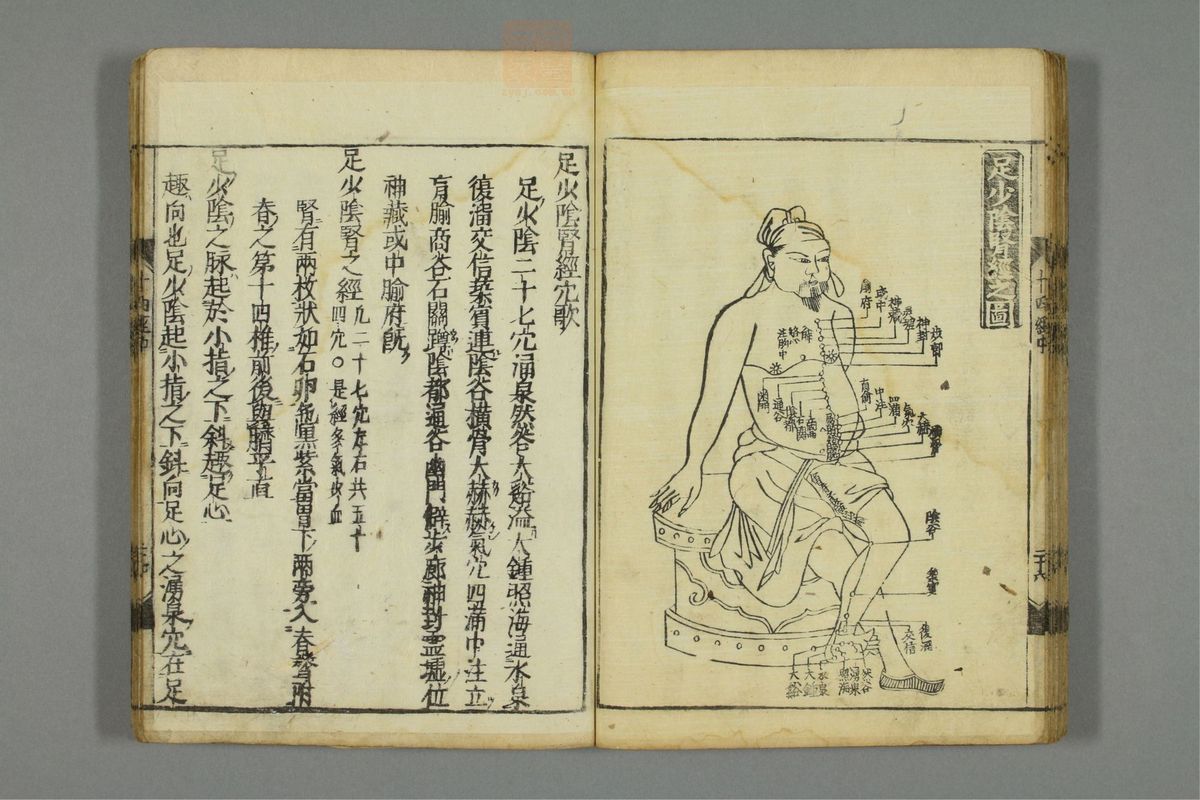 足少陰腎經之圖
俞府
或中
神藏
靈墟
神封
步廊
盲俞
中注
四滿
氣穴
大赫
橫骨
幽門
通谷
陰都
石關
商曲
陰谷
築賓
復溜
交信
然谷
湧泉
照海
水泉
大鍾
大谿
十四經中
二十六
足少陰腎經穴歌
足少陰二十七穴涌泉然谷大谿溢大鍾照海通水泉
復溜交信築賓連陰谷橫骨大赫赫氣穴四滿中注立
肓腧商谷石關蹲陰都通谷幽門僻步廊神封靈墟位
神藏或中腧府旣
足少陰腎之經凡二十七穴左右共五十四穴○是經多氣少血
腎有兩枚狀如石卵色黑紫當胃下兩旁入脊膂附
脊之第十四椎前後與臍平直
足少陰之脉起於小指之下斜趣足心
趣向也足少陰起小指之下斜向足心之湧泉穴在足